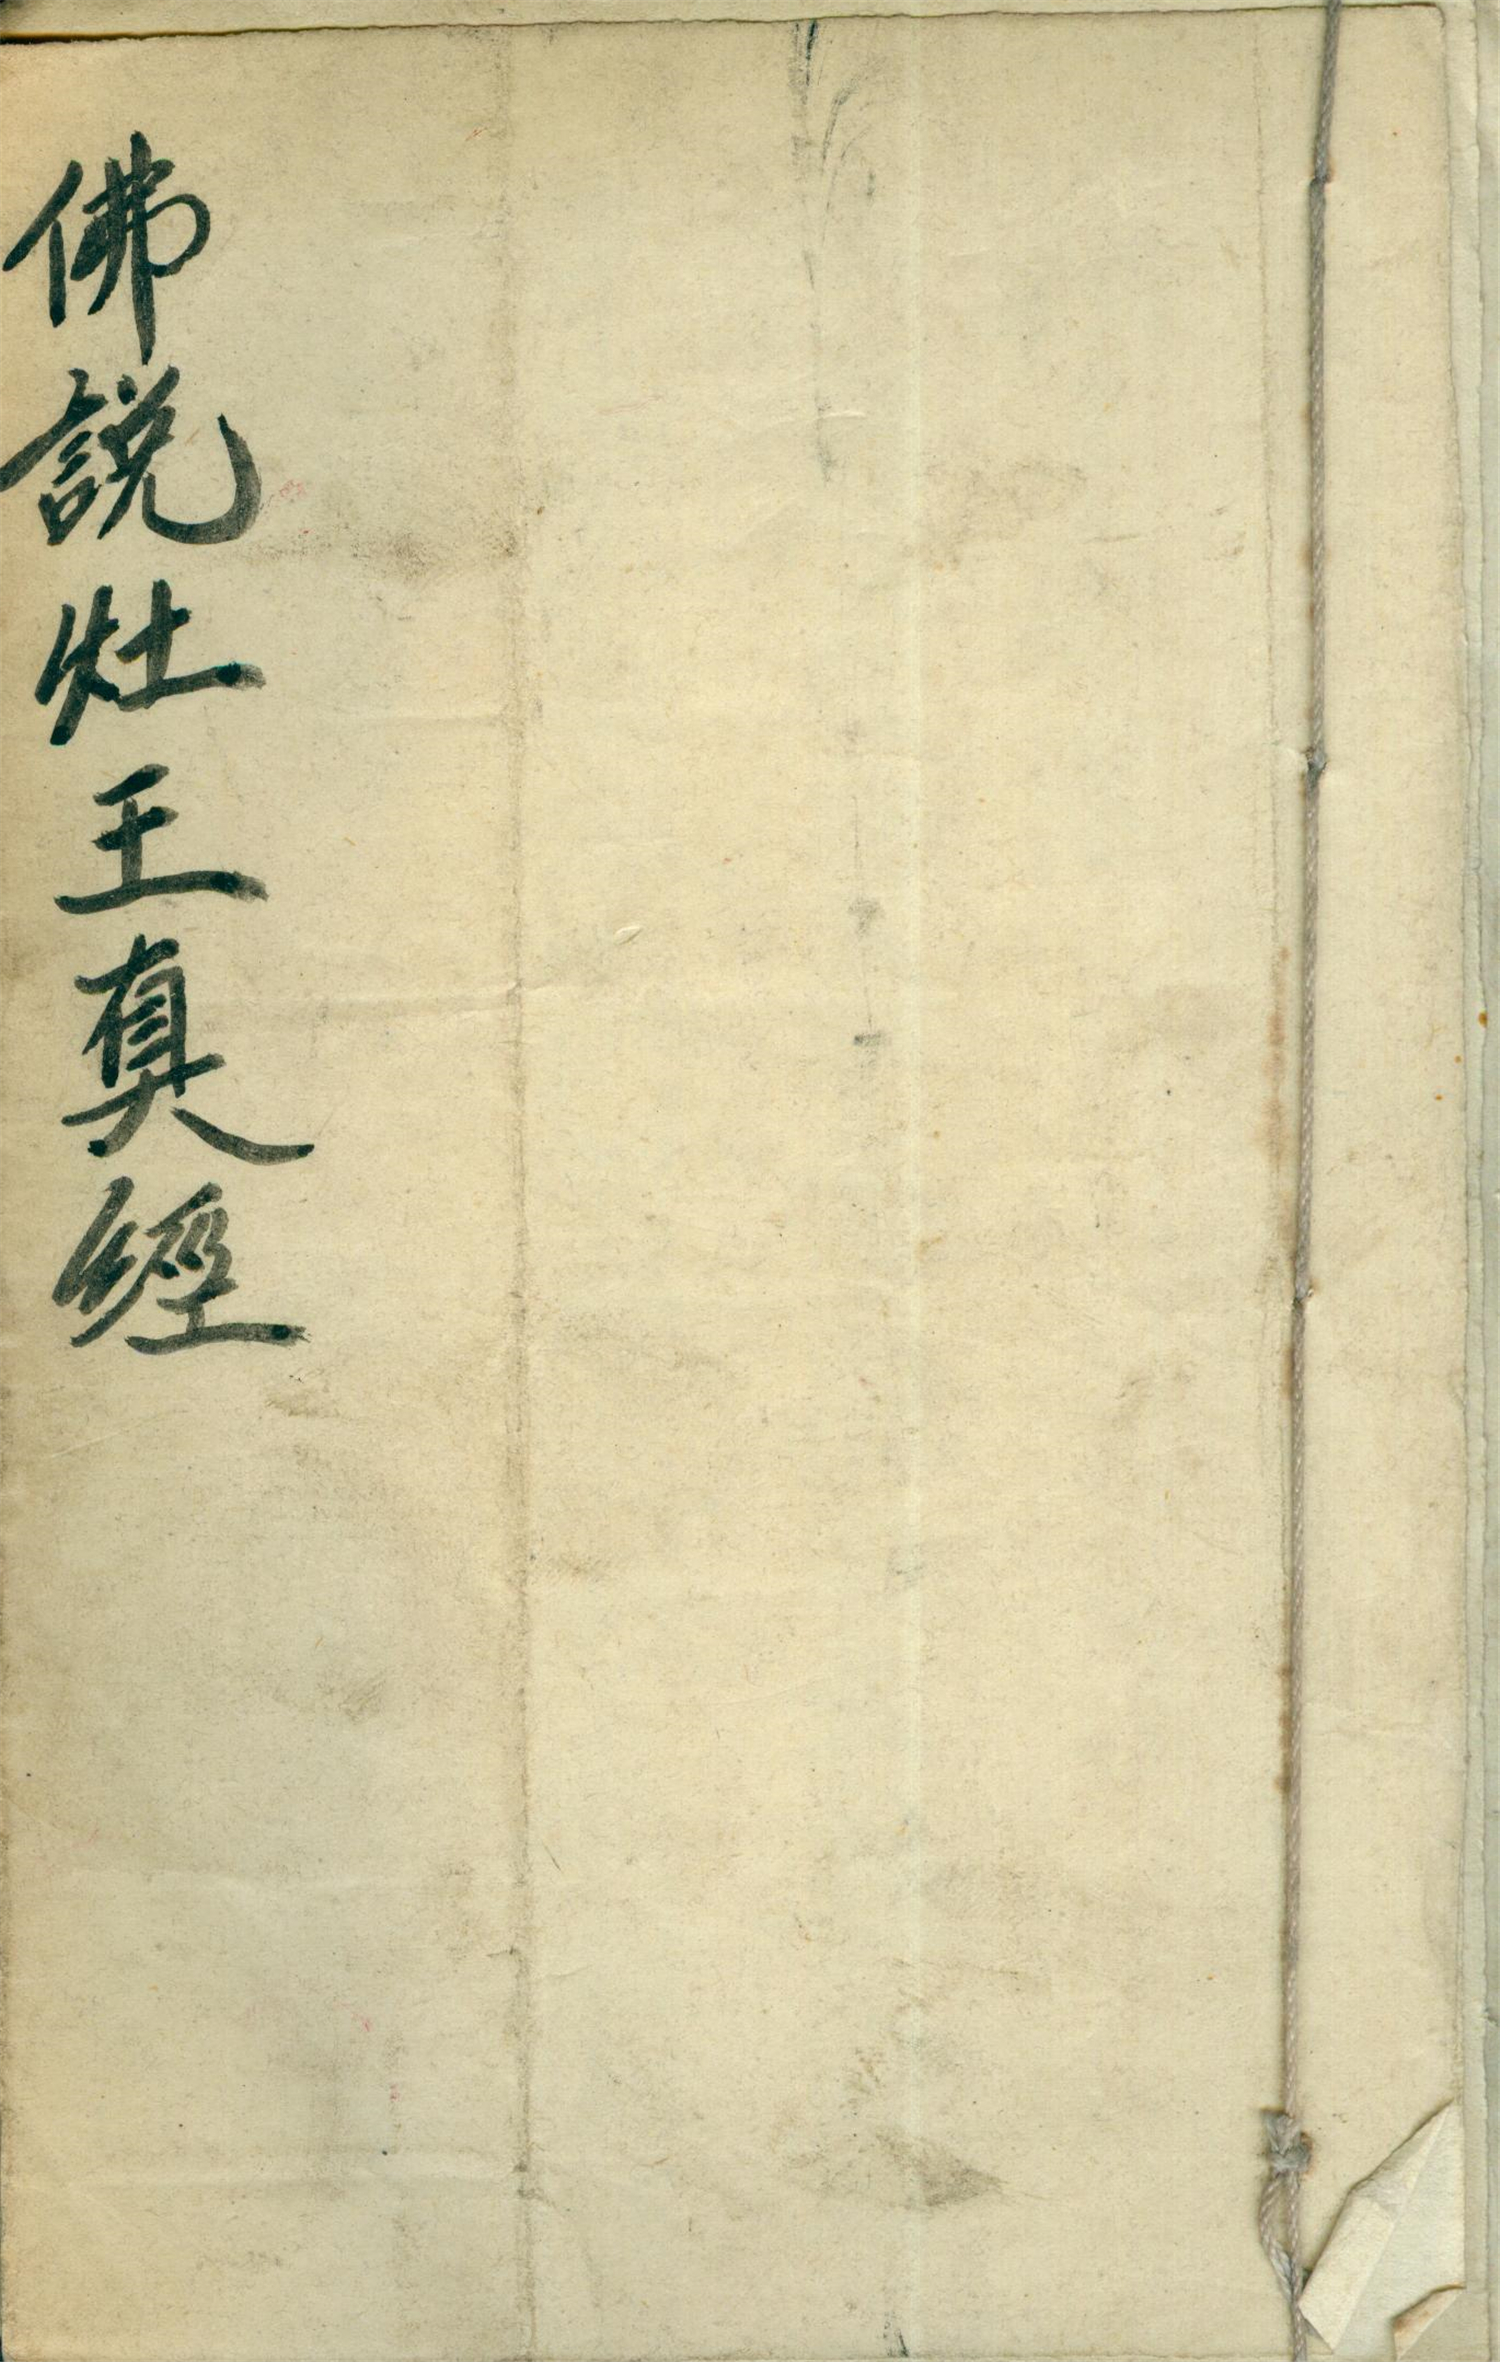 佛說灶王真經